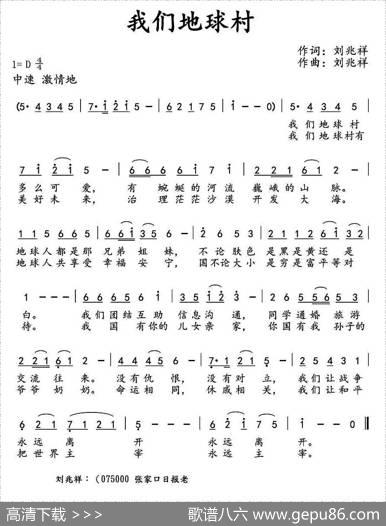 我们地球村
作词：刘兆祥
1=D 4/4
作曲：刘兆祥
中速 激情地
(5· 4 3 4 5 | 7· i 2 i 5 - | 6 2 1 7 5 | i - - -) | 5· 4 3 4 5 |
我 们 地 球 村
我 们 地 球 村 有
7 i 2 i 5 - | 6 6 6 6 i | 7 6 5 4 - | 2 2 1 6 1 | 2 - - - |
多 么 可 爱， 有 蜿 蜒 的 河 流 巍 峨 的 山 脉。
美 好 未 来， 治 理 茫 茫 沙 漠 开 发 大 海。
1 1 5 6 6 5 | 3 1 6 5 - | 6 6 6 5 i i | 7 6 5 6 2 2 |
地球人都是那 兄 弟 姐 妹， 不 论 肤 色 是 黑 是 黄 还 是
地球人共享受 幸 福 安 宁， 国不论大小 是 穷 是 富 平 等 对
1 - - - | 6 6 5 6 5 1 | 3 2 3 6 - | 2 6 5 5 6 5 3 |
白。 我 们 团 结 互 助 信 息 沟 通， 同 学 通 婚 旅 游
待。 我 国 有你的 儿 女 亲 家， 你 国 有 我 孙子的
2 2 1 2 - | 3 4 3 2 1 | 4 5 6 5 - | 7· 1 2 1 5 | 5 2 4 3 1 |
交 流 往 来。 没 有 仇 恨， 没 有 对 立， 我 们 让 战 争
爷 爷 奶 奶。 命 运 相 同， 休 戚 相 关， 我 们 让 和 平
6 2 1 7 1 2 1 | 5 - - - | 6 2 1 7 2 | i - - - :||
永 远 离 开 永 远 离 开。
把 世 界 主 宰 永 远 主 宰。
刘兆祥：（075000 张家口日报老
高清下载 → 歌谱八六 www.gepu86.com